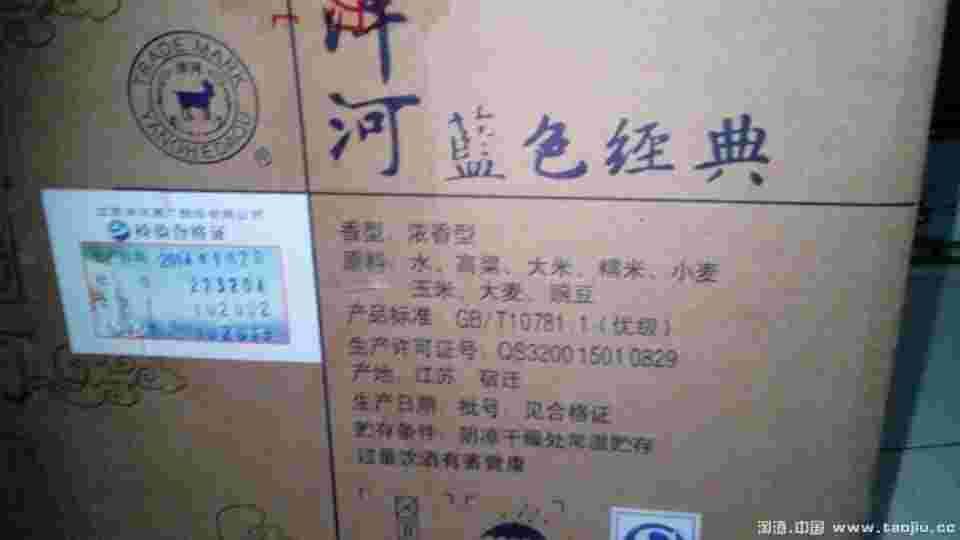 TRADE MARK
YANGHEDAQU
®
洋
河 藍色经典
检验合格证
223204
102002
香型：浓香型
原料：水、高粱、大米、糯米、小麦
玉米、大麦、豌豆
产品标准 GB/T10781.1（优级）
生产许可证号：QS320015010829
产地：江苏 宿迁
生产日期、批号：见合格证
贮存条件：阴凉干燥处常温贮存
过量饮酒有害健康
淘酒.中国 www.taojiu.cc